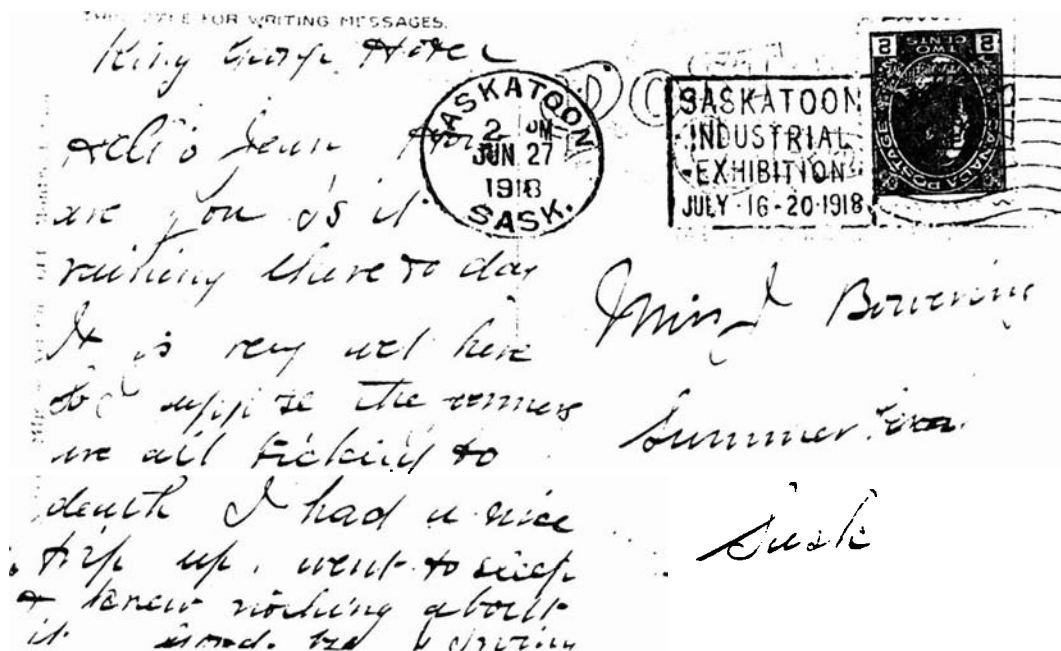 THIS SPACE FOR WRITING MESSAGES.
King George Hotel
Hello Jean How
are you Is it
raining there to day
It is very wet here
so I suppose the
are all tickled to
death I had a nice
trip up. went to sleep
& knew nothing about
it
SASKATOON
2 PM
JUN 27
1918
SASK.
SASKATOON
INDUSTRIAL
EXHIBITION
JULY·16-20·1918
2 TWO CENTS 2
CANADA POSTAGE
Miss J
Sask